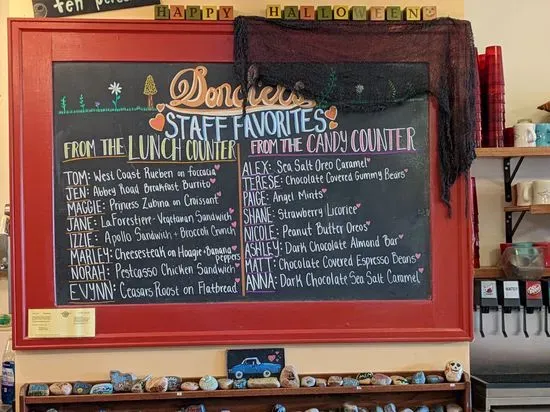 ten per
HAPPY HALLOWEEN
STAFF FAVORITES
FROM THE LUNCH COUNTER
TOM: West Coast Rueben on foccacia
JEN: Abbey Road Breakfast Burrito
MAGGIE: Princess Zubina on Croissant
JANE: LaForestiere-Vegetarian Sandwich
IZZIE: Apollo Sandwich + Broccoli Crunch
MARLEY: Cheesesteak on Hoagie + Banana Peppers
NORAH: Pestcasso Chicken Sandwich
EVYNN: Ceasars Roost on Flatbread
FROM THE CANDY COUNTER
ALEX: Sea Salt Oreo Caramel
TERESE: Chocolate Covered Gummy Bears
PAIGE: Angel Mints
SHANE: Strawberry Licorice
NICOLE: Peanut Butter Oreos
ASHLEY: Dark Chocolate Almond Bar
MATT: Chocolate Covered Espresso Beans
ANNA: Dark Chocolate Sea Salt Caramel
WATER